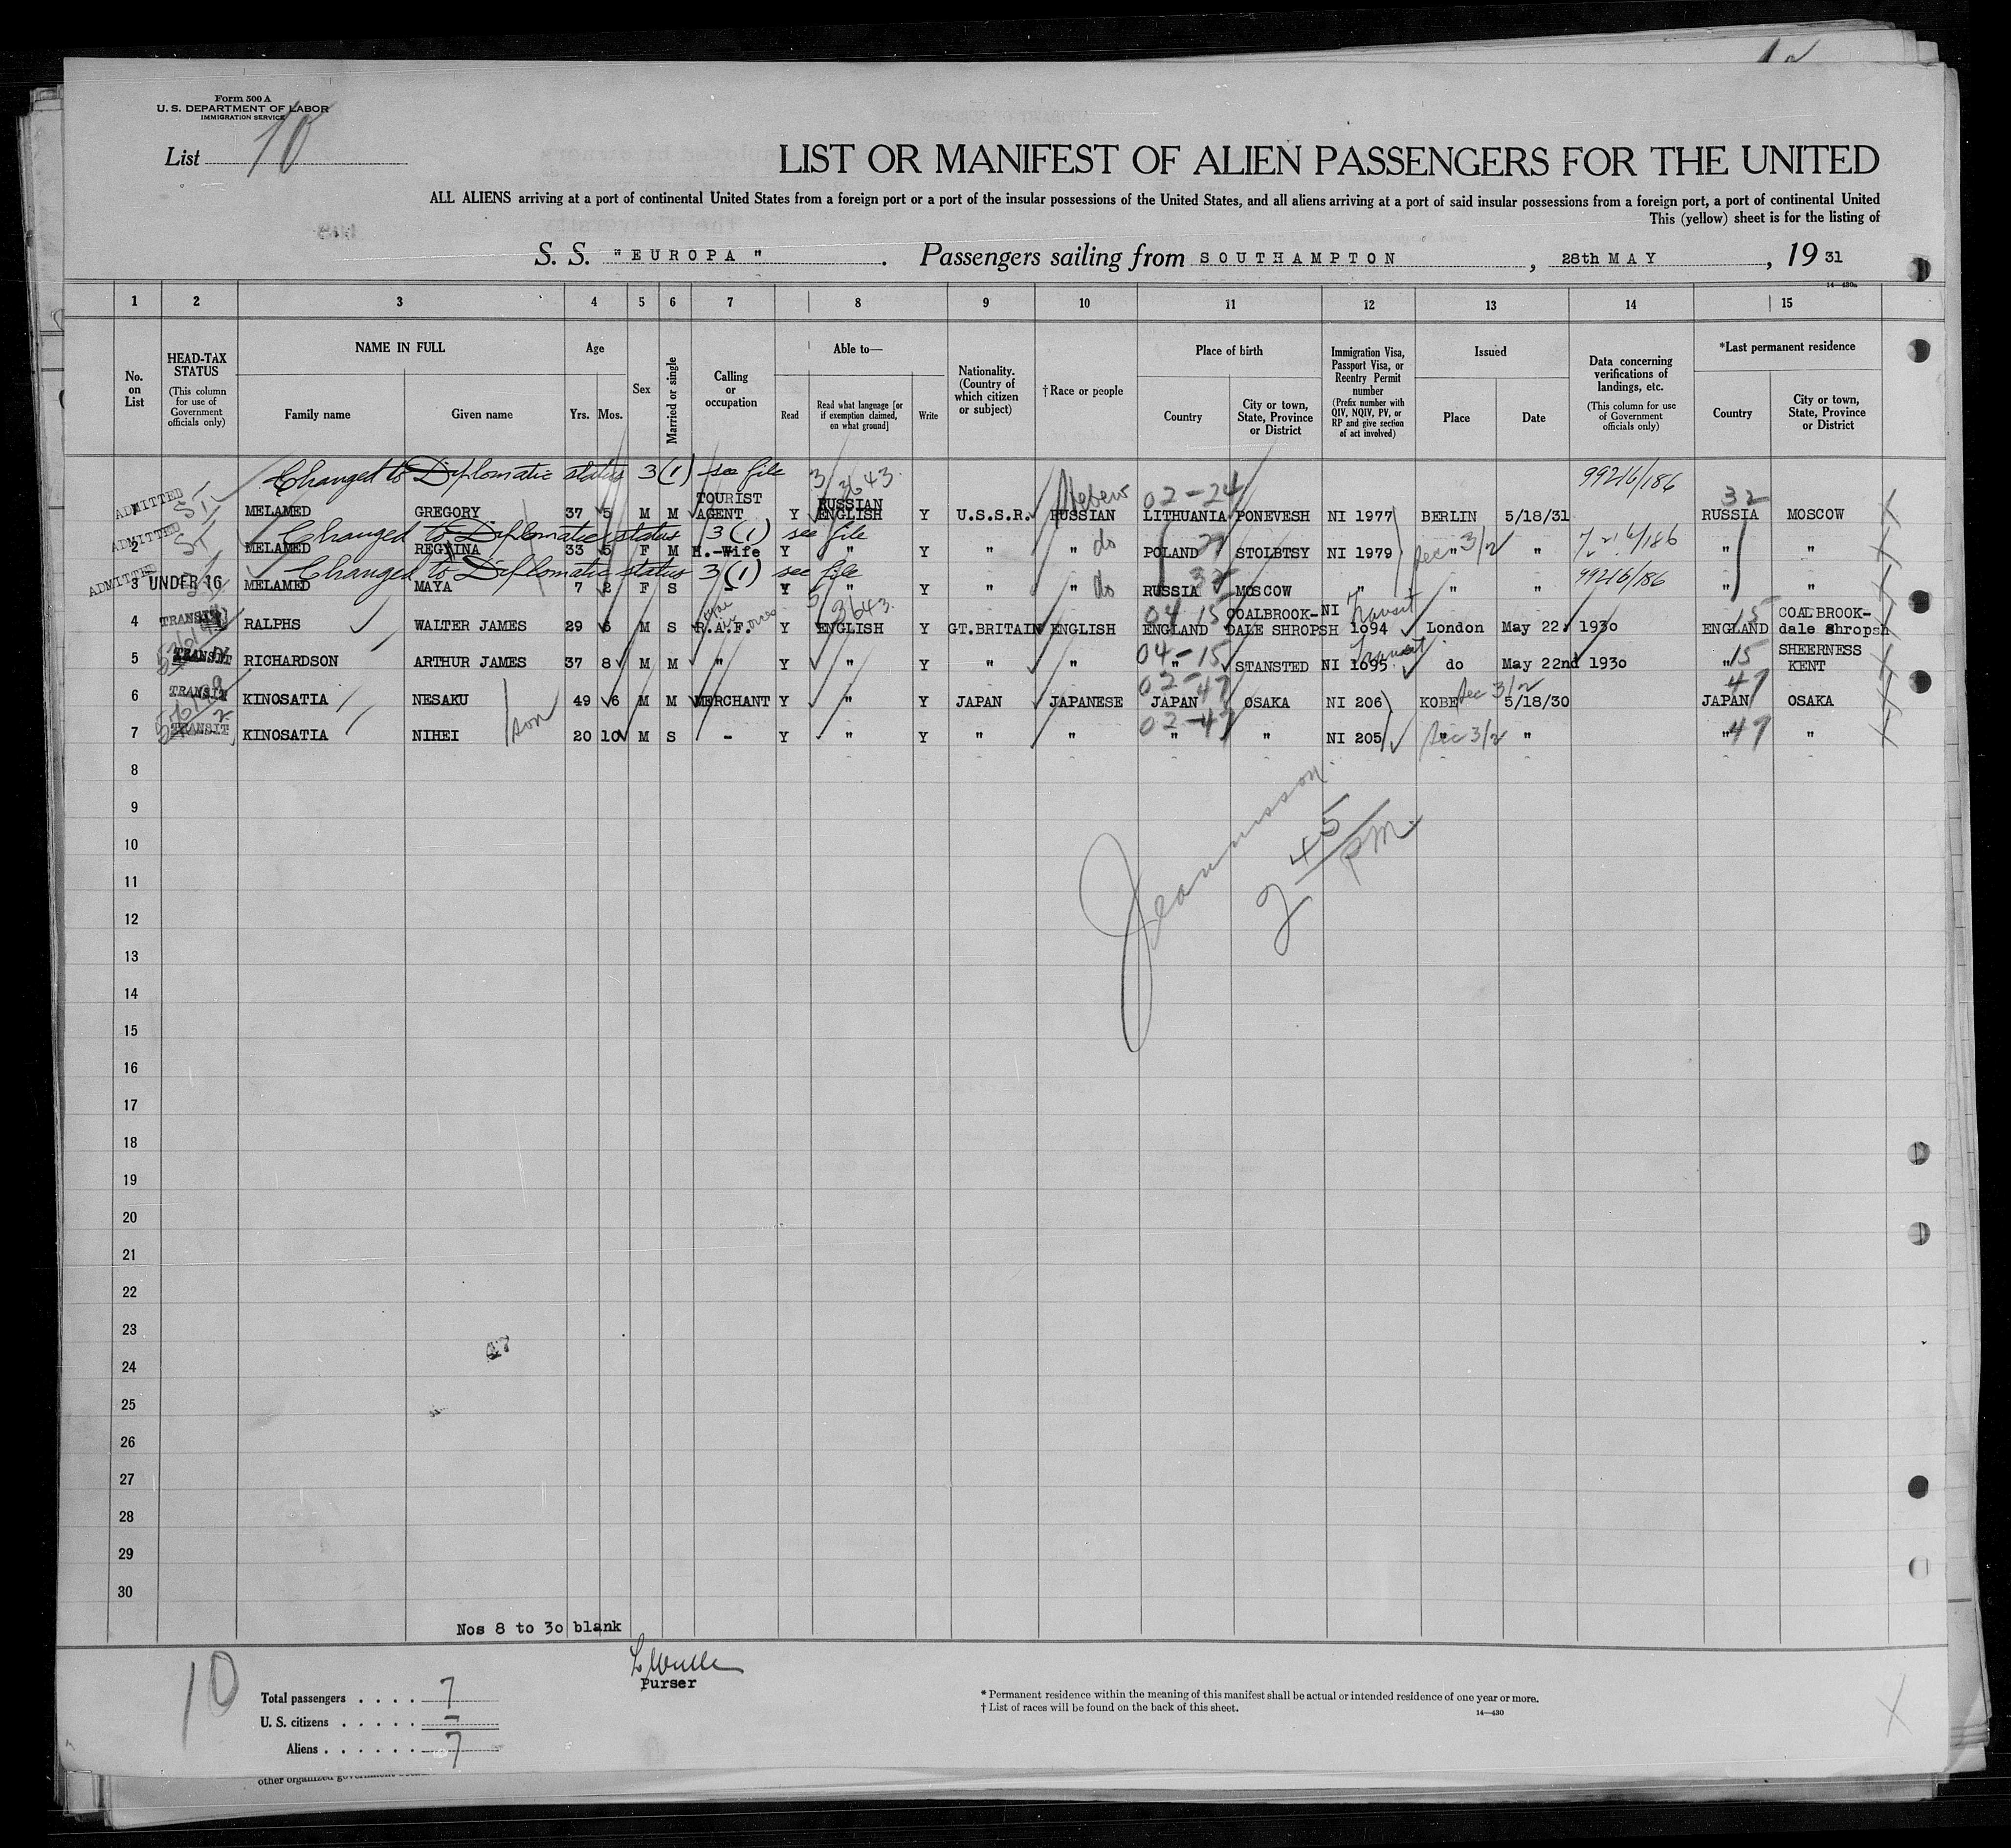 Form 500 A
U. S. DEPARTMENT OF LABOR
IMMIGRATION SERVICE
List 10
LIST OR MANIFEST OF ALIEN PASSENGERS FOR THE UNITED
ALL ALIENS arriving at a port of continental United States from a foreign port or a port of the insular possessions of the United States, and all aliens arriving at a port of said insular possessions from a foreign port, a port of continental United
This (yellow) sheet is for the listing of
S. S. "EUROPA" . Passengers sailing from SOUTHAMPTON , 28th MAY , 19 31
14—430a
1 2 3 4 5 6 7 8 9 10 11 12 13 14 15
No. on List
HEAD-TAX STATUS (This column for use of Government officials only)
NAME IN FULL
Family name Given name
Age
Yrs. Mos.
Sex
Married or single
Calling or occupation
Able to—
Read
Read what language [or if exemption claimed, on what ground]
Write
Nationality. (Country of which citizen or subject)
† Race or people
Place of birth
Country
City or town, State, Province or District
Immigration Visa, Passport Visa, or Reentry Permit number (Prefix number with QIV, NQIV, PV, or RP and give section of act involved)
Issued
Place Date
Data concerning verifications of landings, etc. (This column for use of Government officials only)
*Last permanent residence
Country
City or town, State, Province or District
Changed to Diplomatic status 3(1) see file 3/3643 99216/186
ADMITTED 1 MELAMED GREGORY 37 5 M M TOURIST AGENT Y RUSSIAN ENGLISH Y U.S.S.R. RUSSIAN Hebrew 02-24 LITHUANIA PONEVESH NI 1977 BERLIN 5/18/31 32 RUSSIA MOSCOW
Changed to Diplomatic status 3(1) see file
ADMITTED 2 MELAMED REGYINA 33 5 F M H.-Wife Y " Y " " do POLAND STOLBTSY NI 1979 " Sec 3/2 " " "
Changed to Diplomatic status 3(1) see file 99216/186
ADMITTED 3 UNDER 16 MELAMED MAYA 7 2 F S - Y " Y " " do 32 RUSSIA MOSCOW " " " " "
4 TRANSIT RALPHS WALTER JAMES 29 6 M S R.A.F. Y ENGLISH 3643 Y GT.BRITAIN ENGLISH 04-15 ENGLAND COALBROOK-DALE SHROPSH NI 1094 Transit London May 22. 1930 15 ENGLAND COALBROOK-dale Shropsh
5 TRANSIT RICHARDSON ARTHUR JAMES 37 8 M M " Y " Y " " 04-15 " STANSTED NI 1095 Transit do May 22nd 1930 " 15 SHEERNESS KENT
6 TRANSIT KINOSATIA NESAKU 49 6 M M MERCHANT Y " Y JAPAN JAPANESE 02-47 JAPAN OSAKA NI 206 KOBE Sec 3/2 5/18/30 47 JAPAN OSAKA
7 TRANSIT KINOSATIA NIHEI son 20 10 M S - Y " Y " " 02-47 " " NI 205 " Sec 3/2 " " 47 "
8
9
10
11
12
13
14
15
16
17
18
19
20
21
22
23
24
25
26
27
28
29
30
2 45 PM
Nos 8 to 30 blank
Purser
10
Total passengers . . . . 7
U. S. citizens . . . . . –
Aliens . . . . . . 7
* Permanent residence within the meaning of this manifest shall be actual or intended residence of one year or more.
† List of races will be found on the back of this sheet.
14—430